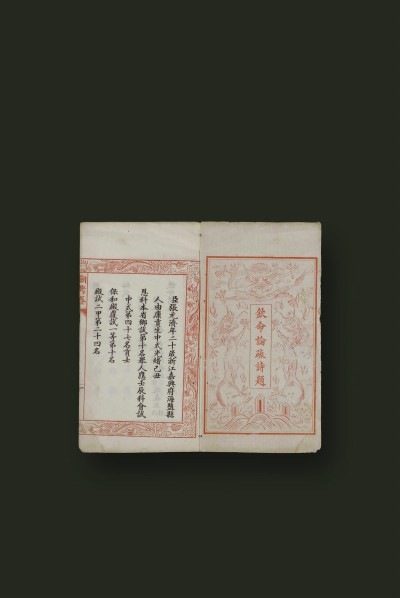 欽命論疏詩題
臣張元濟年二十歲浙江嘉興府海鹽縣
人由廩貢生中式光緒己丑
恩科本省鄉試第十名舉人應壬辰科會試
中式第四十七名貢士
保和殿覆試一等第十名
殿試二甲第二十四名